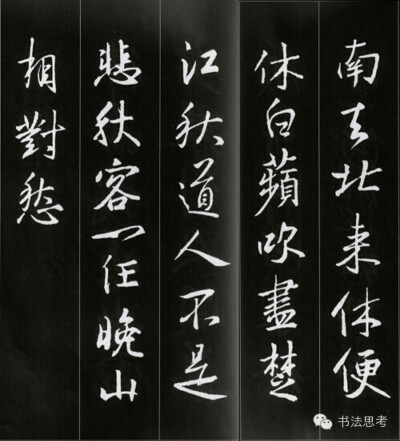 南去北来休便
休白蘋吹盡楚
江秋道人不是
悲秋客一任晚山
相對愁
书法思考